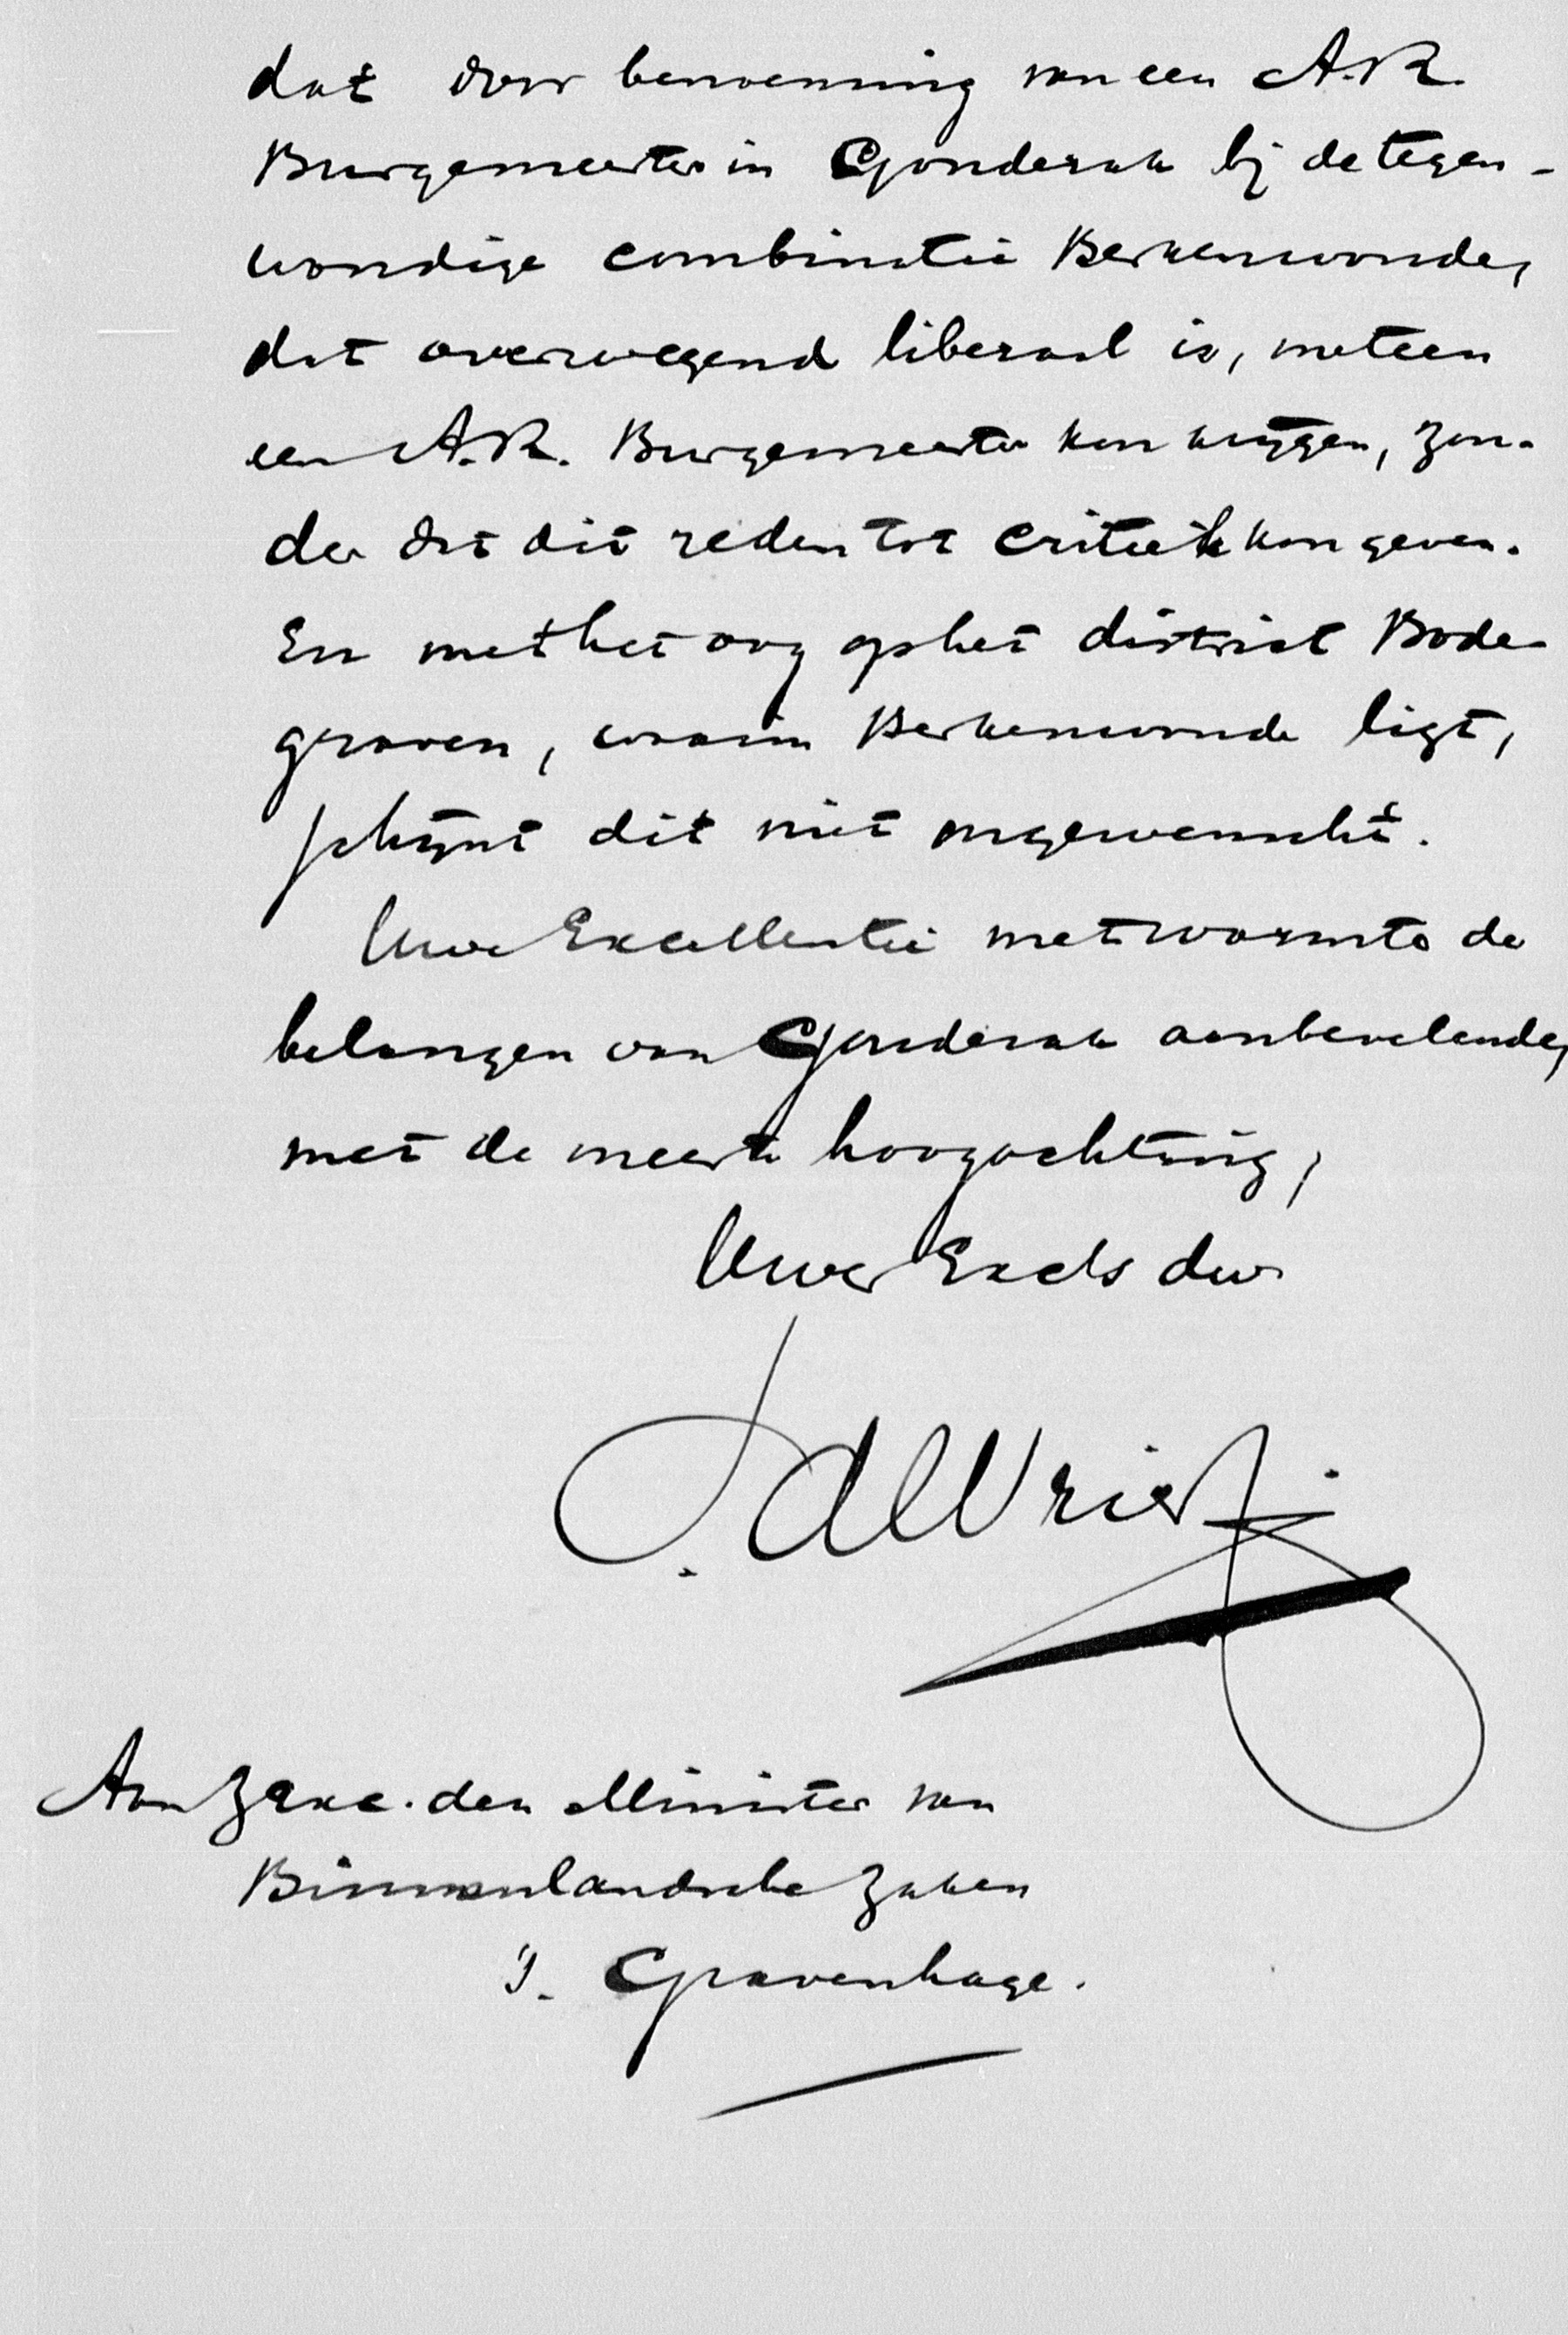 dat door benoeming van een A.R.
Burgemeester in Gouderak bij de tegen-
woordige combinatie Berkenwoude,
dat overwegend liberaal is, meteen
een A.R. Burgemeester kan krijgen, zon-
der dat dit reden tot critiek kan geven.
En met het oog op het district Bode-
graven, waarin Berkenwoude ligt,
schijnt dit niet ongewenscht.
Uwe Excellentie met warmte de
belangen van Gouderak aanbevelende,
met de meeste hoogachting,
Uwer Excls dw
Aan Z Exc. den Minister van
Binnenlandsche Zaken
's Gravenhage.